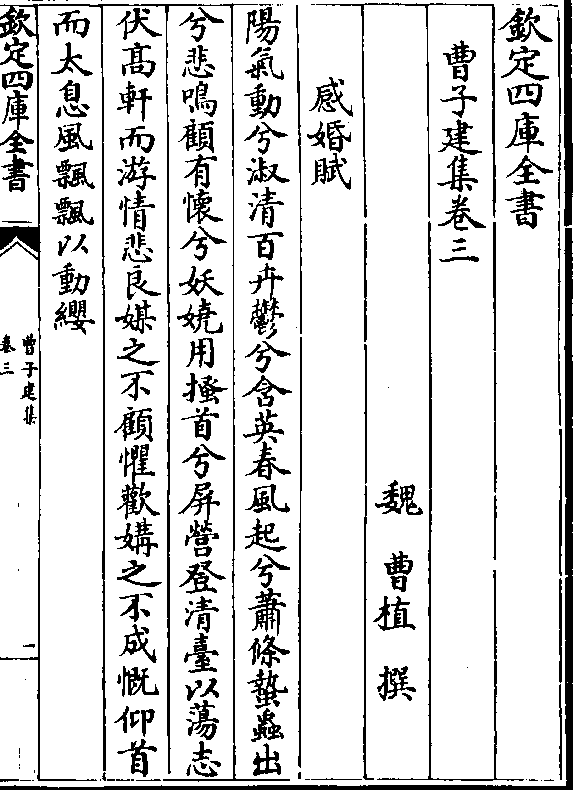 欽定四庫全書
曹子建集卷三
魏 曹植 撰
感婚賦
陽氣動兮淑清百卉鬱兮含英春風起兮蕭條蟄蟲出
兮悲鳴顧有懷兮妖嬈用搔首兮屏營登清臺以蕩志
伏髙軒而游情悲良媒之不顧懼歡媾之不成慨仰首
而太息風飄飄以動纓
欽定四庫全書
曹子建集
卷三
一